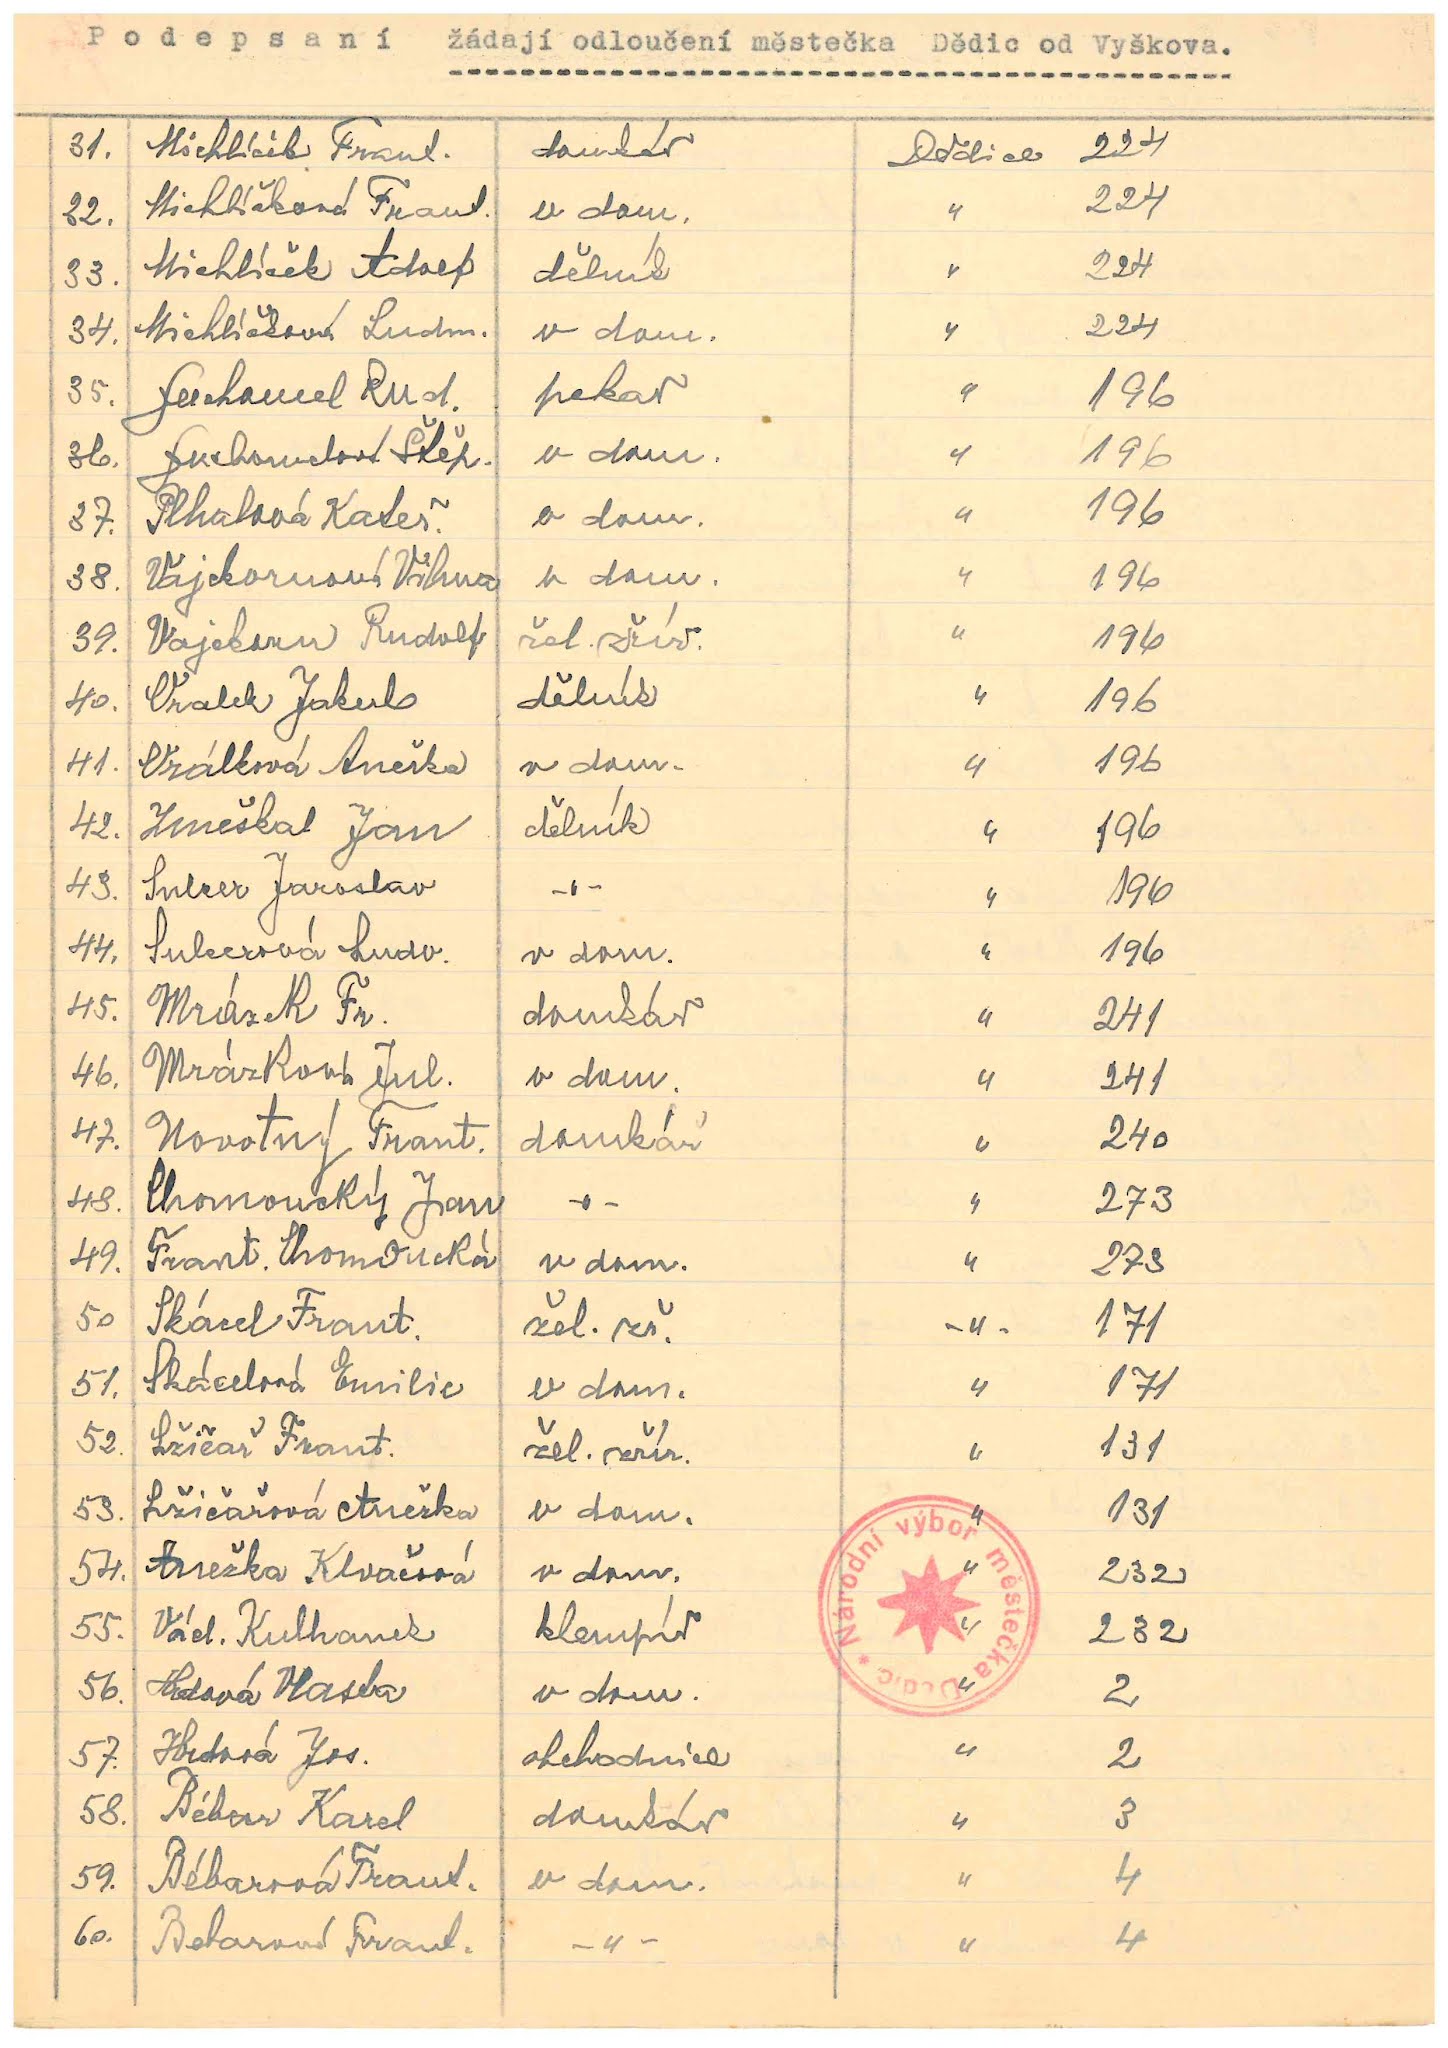 Podepsaní žádají odloučení městečka Dědic od Vyškova.
31. Michlíček Frant. domkář Dědice 224
32. Michlíčková Frant. v dom. " 224
33. Michlíček Adolf dělník " 224
34. Michlíčková Ludm. v dom. " 224
35. Rud. pekař " 196
36. Štěp. v dom. " 196
37. Plhalová Kateř. v dom. " 196
38. Vajekornová Vilma v dom. " 196
39. Vajekorn Rudolf žel. zříz. " 196
40. Vrálek Jakub dělník " 196
41. Vrálková Anežka v dom. " 196
42. Zmeškal Jan dělník " 196
43. Sulcer Jaroslav -"- " 196
44. Sulcerová Ludv. v dom. " 196
45. Mrázek Fr. domkář " 241
46. Mrázková Jul. v dom. " 241
47. Novotný Frant. domkář " 240
48. Chomoucký Jan -"- " 273
49. Frant. Chomoucká v dom. " 273
50 Skácel Frant. žel. zř. -"- 171
51. Skácelová Emilie v dom. " 171
52. Lžičař Frant. žel. zříz. " 131
53. Lžičařová Anežka v dom. " 131
54. Anežka Klvačová v dom. " 232
55. Vác. Kulhanek klempíř " 232
56. Vlasta v dom. " 2
57. Jos. obchodnice " 2
58. Bébar Karel domkář " 3
59. Bébarová Frant. v dom. " 4
60. Bebarová Frant. -"- " 4
* Národní výbor městečka Dědic